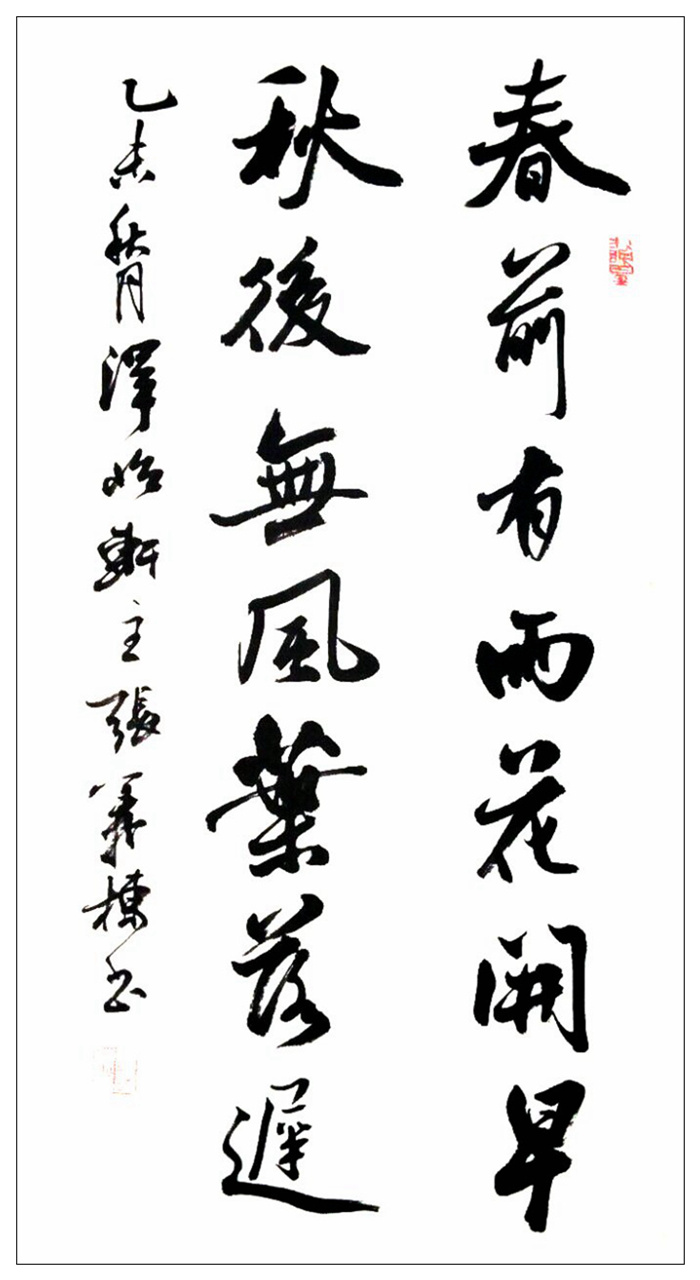 春前有雨花開早
秋後無風葉落遲
乙未秋月澤怡軒主張義棟书